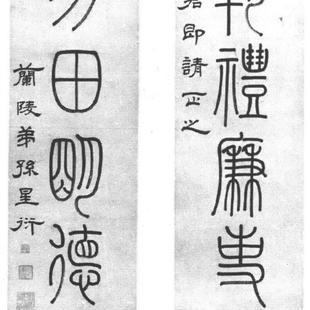 禮廉吏
即請正之
田明德
蘭陵弟孫星衍